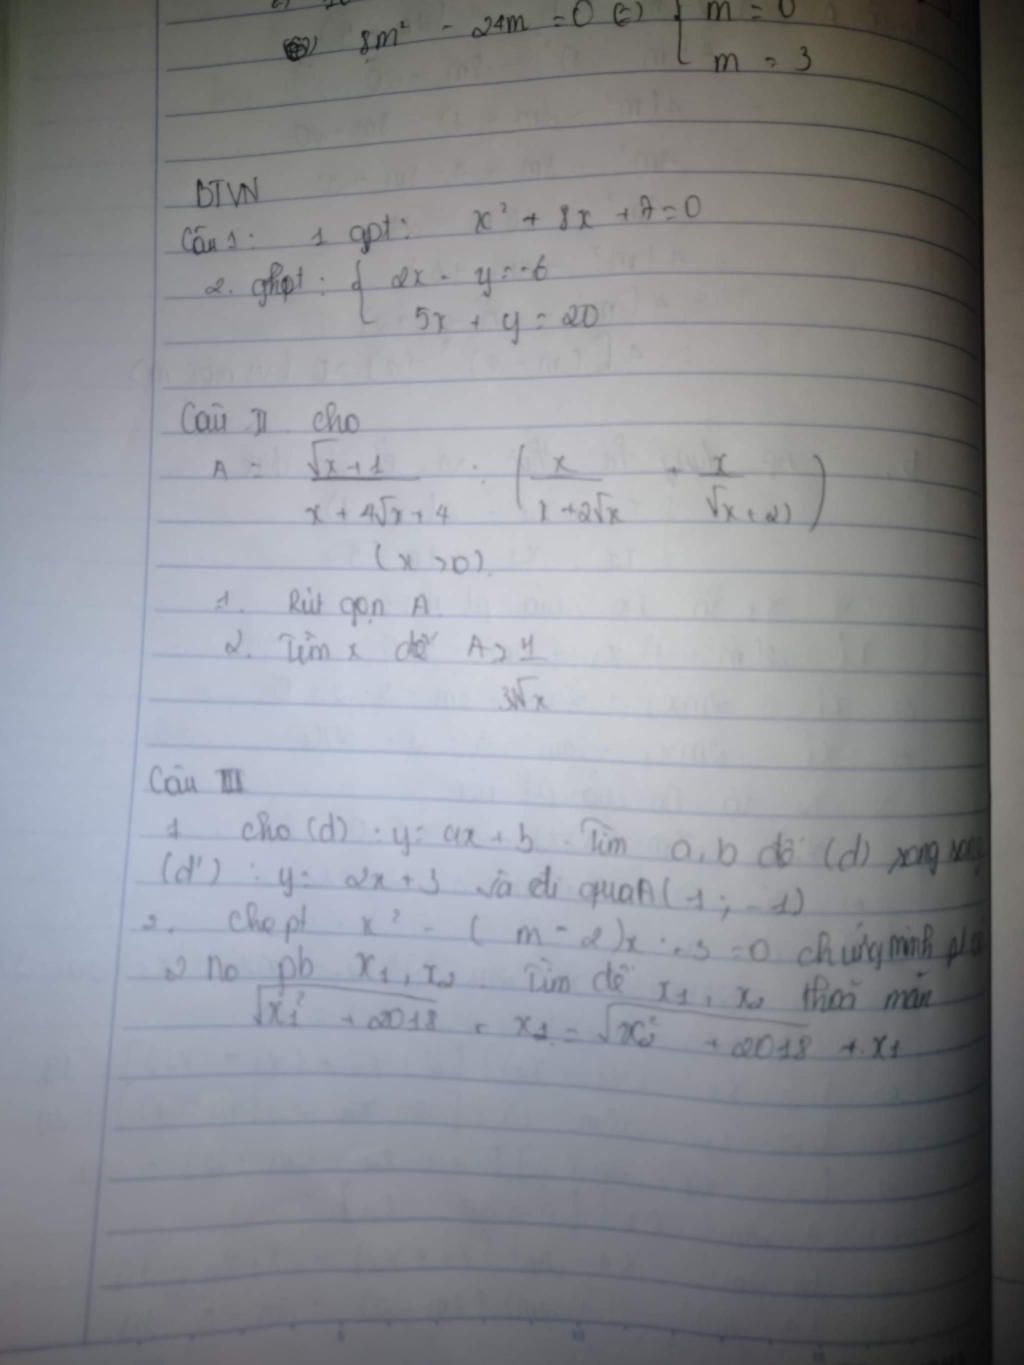 8m² - 24m = 0 (=) { m = 0
m = 3
BTVN
Câu 1: 1 gpt: x² + 8x + 7 = 0
2. ghpt: { 2x - y = -6
5x + y = 20
Câu II cho
A = (√x + 1)/(x + 4√x + 4) : (x/(x + 2√x) + x/(√x + 2))
(x > 0).
1. Rút gọn A.
2. Tìm x để A ≥ 1/(3√x)
Câu III
1 cho (d) : y = ax + b. Tìm a, b để (d) song song
(d') : y = 2x + 3 và đi qua A(1; -1)
2. cho pt x² - (m - 2)x - 3 = 0 chứng minh pt
2 no pb x₁, x₂. Tìm để x₁, x₂ thoả mãn
√x₁² + 2018 - x₁ = √x₂² + 2018 + x₁